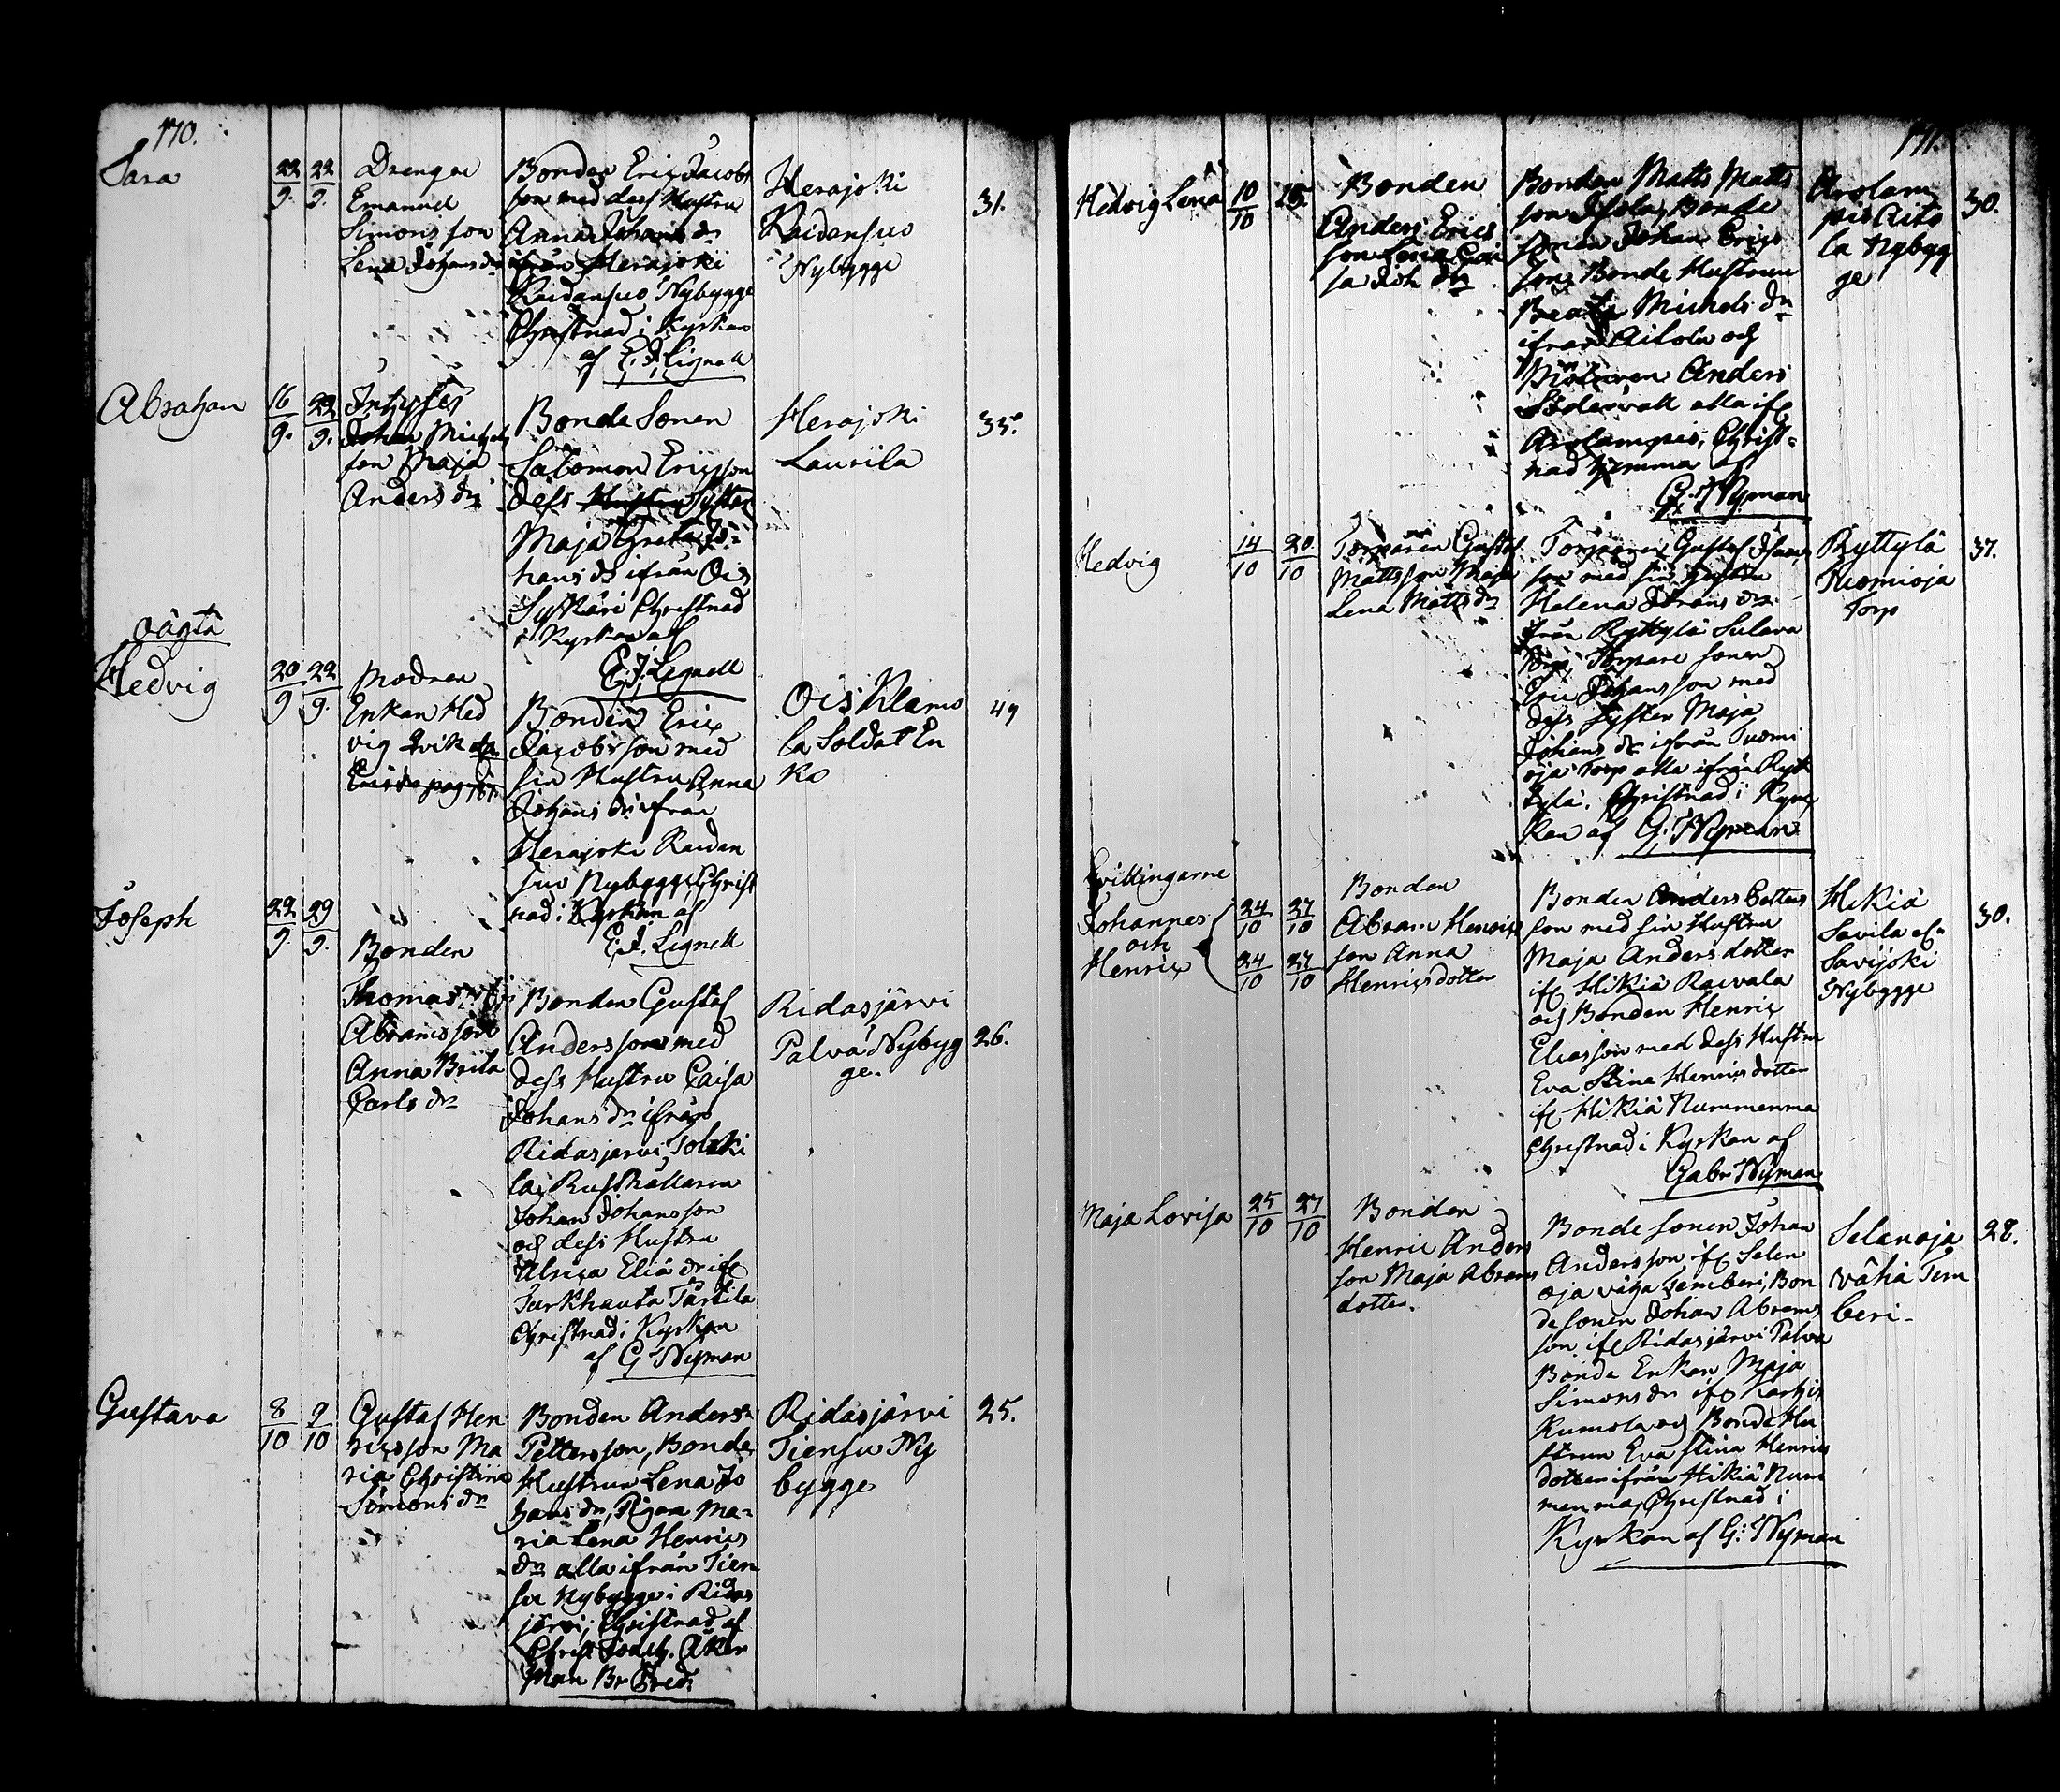 170.
Sara
22/9. 22/9.
Drengen
Emanuel
Simons son
Lena Johans dr
Bonden Eric Jacobs
son med dess Hustru
Anna Johans dr
ifrån Herajoki
Raidansuo Nybygge
Christnad i Kyrkan
af E. J. Lignell
Herajoki
Raidansuo
Nybygge
31.
Abraham
16/9. 22/9.
Inhyses
Johan Michels
son Maja
Anders dr
Bonde Sonen
Salomon Ericsson
dess Hustru Syster
Maja Greta Jo-
hans dr ifrån Ois
Syrkäri Christnad
i Kyrkan af
E. J. Lignell
Herajoki
Laurila
35.
oägta
Hedvig
20/9 22/9.
Modren
Enkan Hed
vig Qvik
Bonden Eric
Jacobsson med
sin Hustru Anna
Johans dr ifrån
Herajoki Raidan
suo Nybygge Christ
nad i Kyrkan af
E. J. Lignell
Ois Klemo
la Soldat En
ka
49
Joseph
22/9. 29/9.
Bonden
Thomas
Abramsson
Anna Brita
Carls dr
Bonden Gustaf
Andersson med
dess Hustru Caisa
Johans dr ifrån
Ridasjärvi Tolski
la, Rusthållaren
Johan Johansson
och dess Hustru
Ulrica Eliæ dr ifr
Turkhauta Partila
Christnad i Kyrkan
af G Nyman
Ridasjärvi
Palva Nybyg
ge.
26.
Gustava
8/10 9/10
Gustaf Hen
ricsson Ma
ria Christina
Simons dr
Bonden Anders
Pettersson, Bonde
Hustrun Lena Jo
hans dr, Pigan Ma-
ria Lena Henrics
dr alla ifrån Tien
su Nybygge i Ridas
järvi; Christnad af
Christ. Åker
man Br Pred:
Ridasjärvi
Tiensu Ny
bygge
25.
171.
Hedvig Lena
10/10 15
Bonden
Anders Erics
son Lena Cai
sa Joh dr
Bonden Matts Matts
son Isola, Bonde
sonen Johan Erics
son, Bonde Hustrun
Beata Michels dr
ifrån Aitola och
Anders
Södervall alla ifr
Arolampis, Christ-
nad hemma af
G. Nyman
Arolam
pis Aito
la Nybyg
ge
30.
Hedvig
14/10 20/10
Torparen Gustaf
Mattsson Maja
Lena Matts dr
Torparen Gustaf Isaacs
son med sin Hustru
Helena Johans dr
från Ryttylä Sulava
Torp, Torpare sonen
Eric Johansson med
dess syster Maja
Johans dr ifrån Tuomi
oja Torp alla ifrån Ryt
tylä. Christnad i Kyr
kan af G: Nyman
Ryttylä
Tuomioja
Torp
37.
Tvillingarne
Johannes
och
Henric
24/10 27/10
24/10 27/10
Bonden
Abram Henrics
son Anna
Henricsdotter
Bonden Anders Petters
son med sin Hustru
Maja Andersdotter
ifr Hikiä Raivala
och Bonden Henric
Eliasson med dess Hustru
Eva Stina Henricsdotter
ifr Hikiä Nummenma
Christnad i Kyrkan af
Gabr Nyman
Hikiä
Savila el.
Savijoki
Nybygge
30.
Maja Lovisa
25/10 27/10
Bonden
Henric Anders
son Maja Abrams
dotter.
Bonde sonen Johan
Andersson ifr Selen
oja vähä Temberi, Bon
de sonen Johan Abrams
son ifr Ridasjärvi Palva
Bonde Enkan Maja
Simons dr ifr Karhis
Kumola och Bonde Hu
strun Eva Stina Henrics
dotter ifrån Hikiä Num
menma, Christnad i
Kyrkan af G: Nyman
Selenoja
vähä Tem
beri-
28.